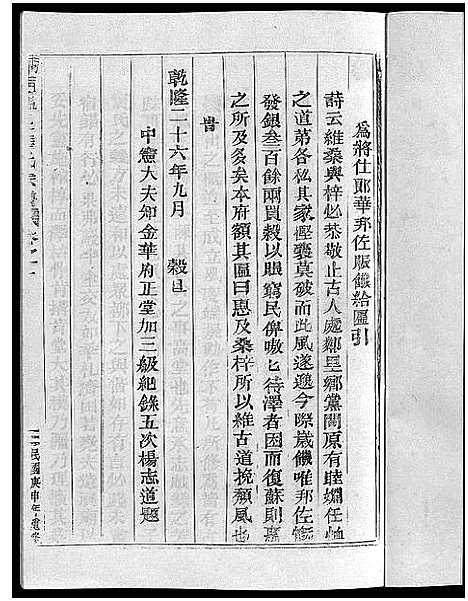 為將仕郎華邦佐賑饑給匾引
詩云維桑與梓必恭敬止古人處鄰里鄉黨閭原有睦婣任恤
之道第各私其家慳襲莫破而此風遂邈今際歲饑唯邦佐慨
發銀叁百餘兩買穀以賑窮民俾嗷匕待澤者因而復蘇則惠
之所及多矣本府額其匾曰惠及桑梓所以維古道挽頹風也
旹
乾隆二十六年九月 穀旦
中憲大夫知金華府正堂加三級紀錄五次楊志道題
民國庚申年重修